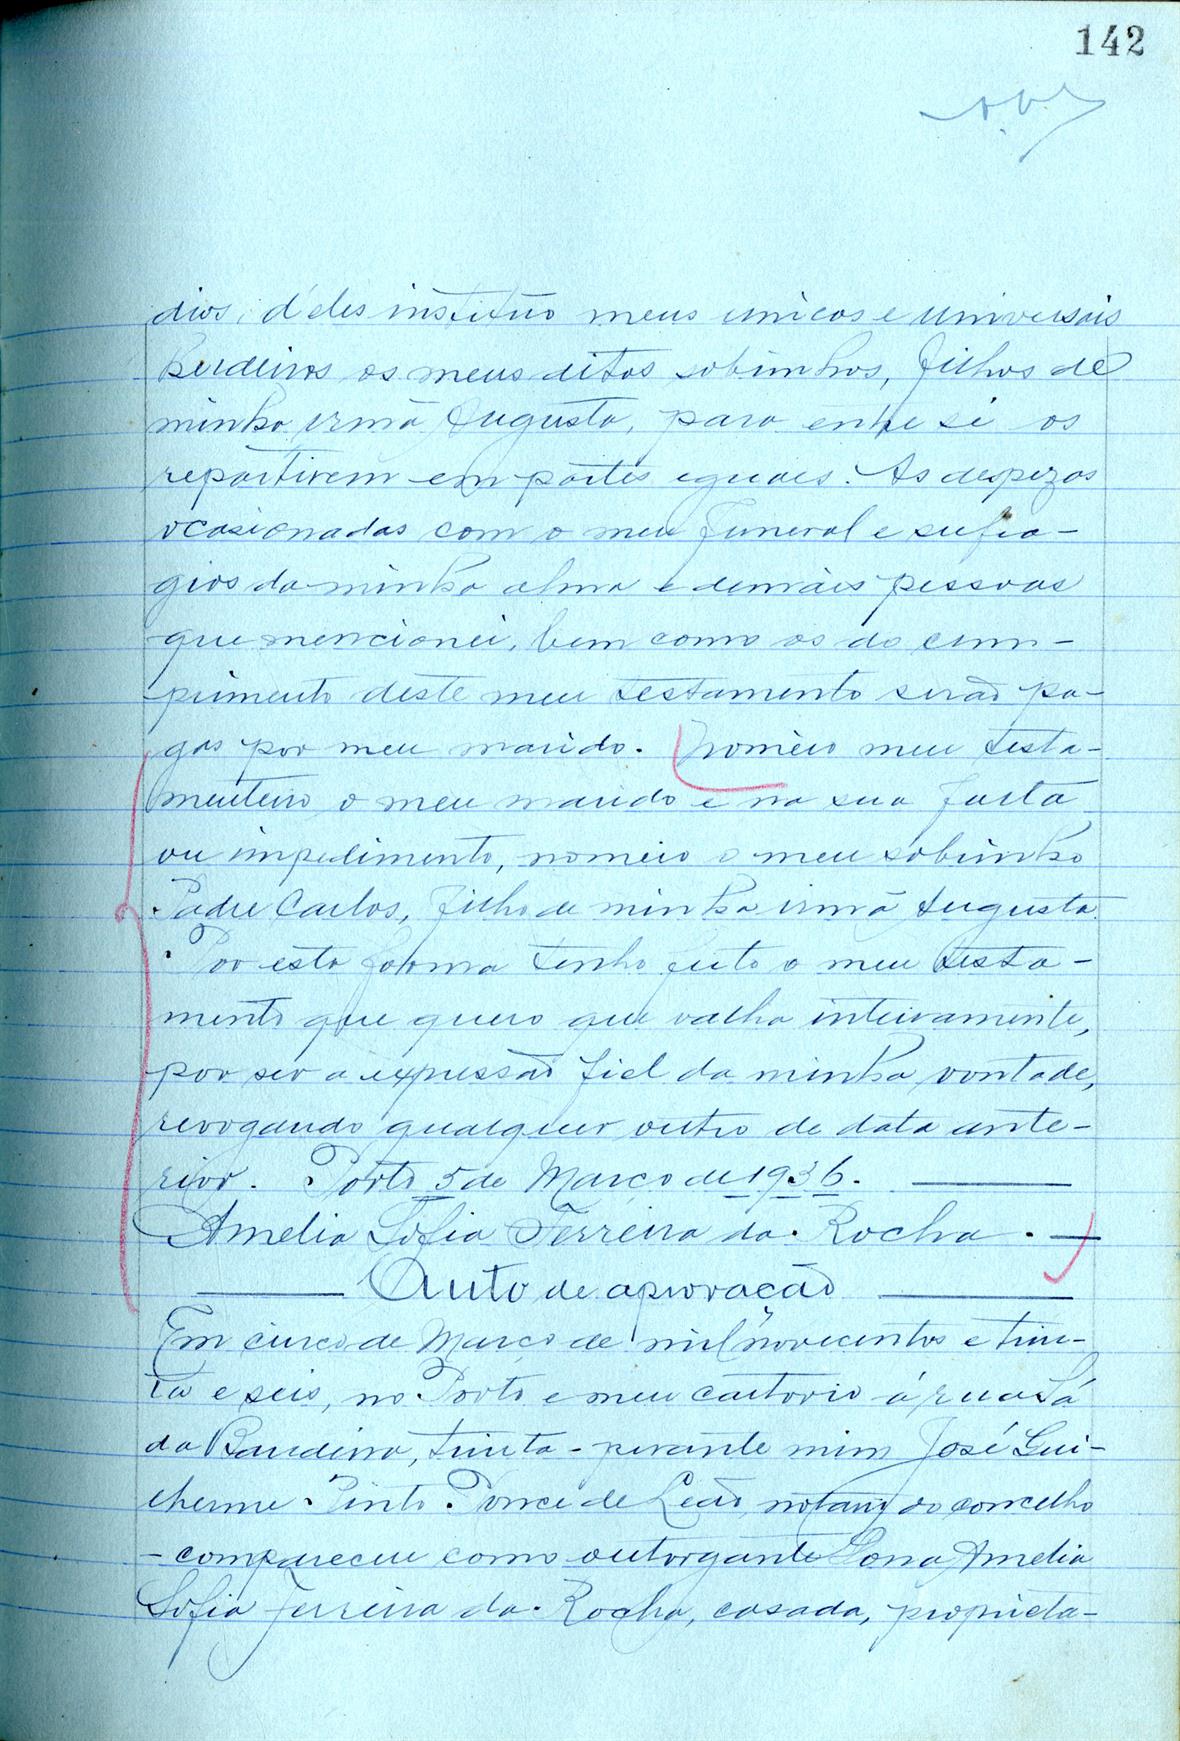 142
dios, d'eles instituo meus unicos e universais
herdeiros os meus ditos sobrinhos, filhos de
minha irmã Augusta, para entre si os
repartirem em partes eguaes. As despezas
ocasionadas com o meu funeral e sufra-
gios da minha alma e demais pessoas
que mencionei, bem como as do cum-
primento deste meu testamento serão pa-
gas por meu marido. Nomeio meu testa-
menteiro o meu marido e na sua falta
ou impedimento, nomeio o meu sobrinho
Padre Carlos, filho de minha irmã Augusta.
Por esta forma tenho feito o meu testa-
mento que quero que valha inteiramente,
por ser a expressão fiel da minha vontade,
revogando qualquer outro de data ante-
rior. Porto 5 de Março de 1936.
Amelia Sofia Ferreira da Rocha.
Auto de aprovação
Em cinco de Março de mil novecentos e trin-
ta e seis, no Porto e meu cartorio á rua Sá
da Bandeira, trinta - perante mim José Gui-
lherme Pinto Ponce de Leão, notario do concelho
- compareceu como outorgante Dona Amelia
Sofia Ferreira da Rocha, casada, proprieta-